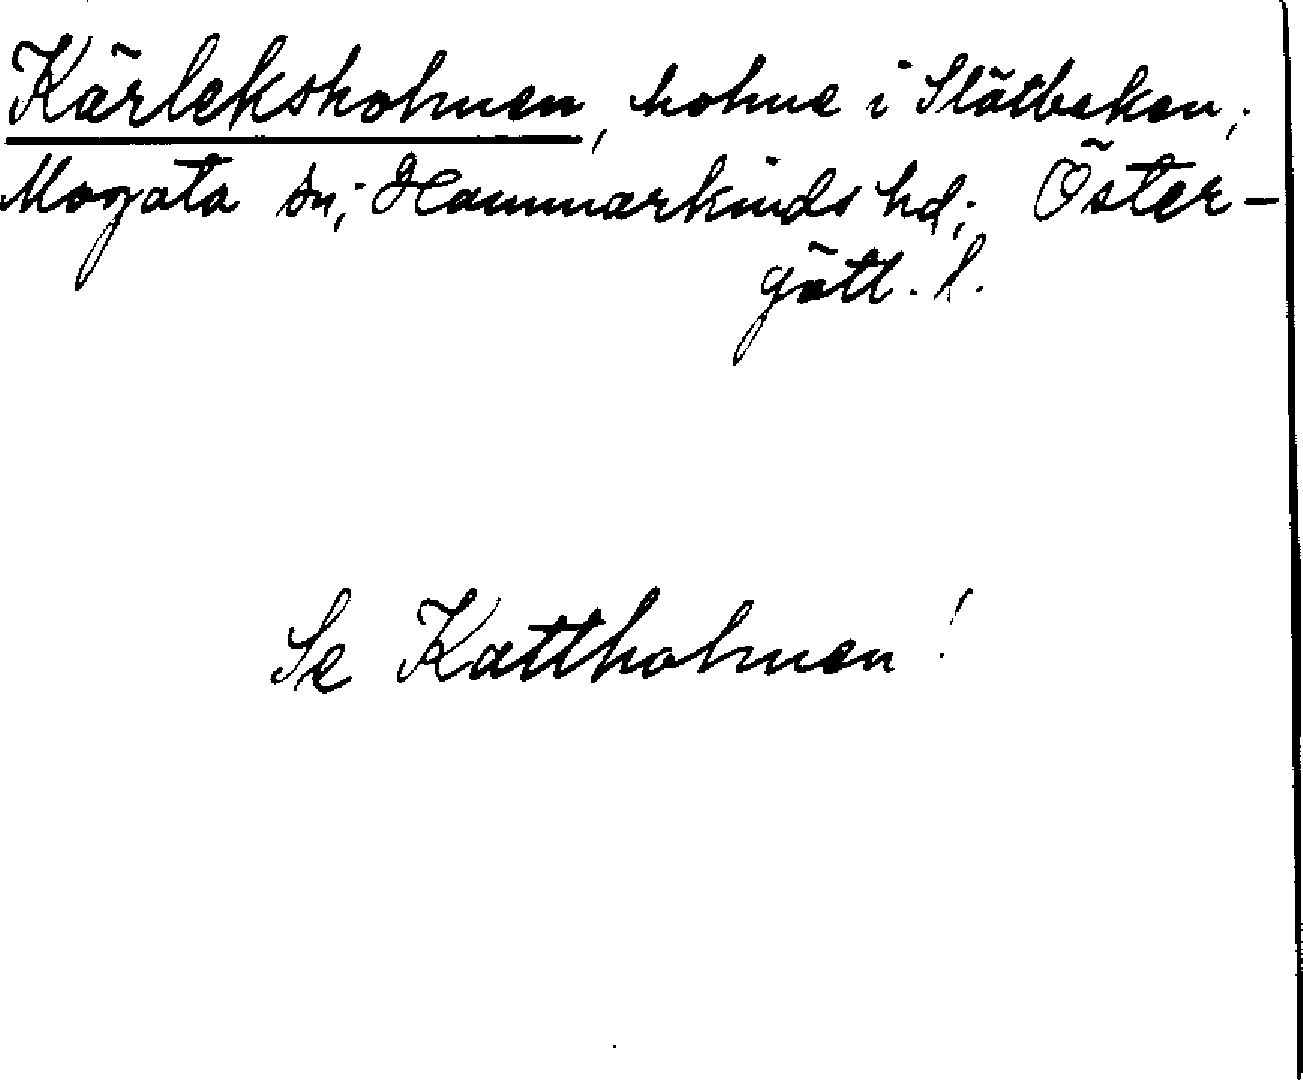 Kärleksholmen, holme i Slätbaken;
Mogata sn; Hammarkinds hd; Öster-
götl. l.
Se Kattholmen!